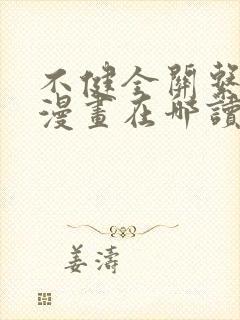 不健全關繫
漫畫在哪讀
姜濤